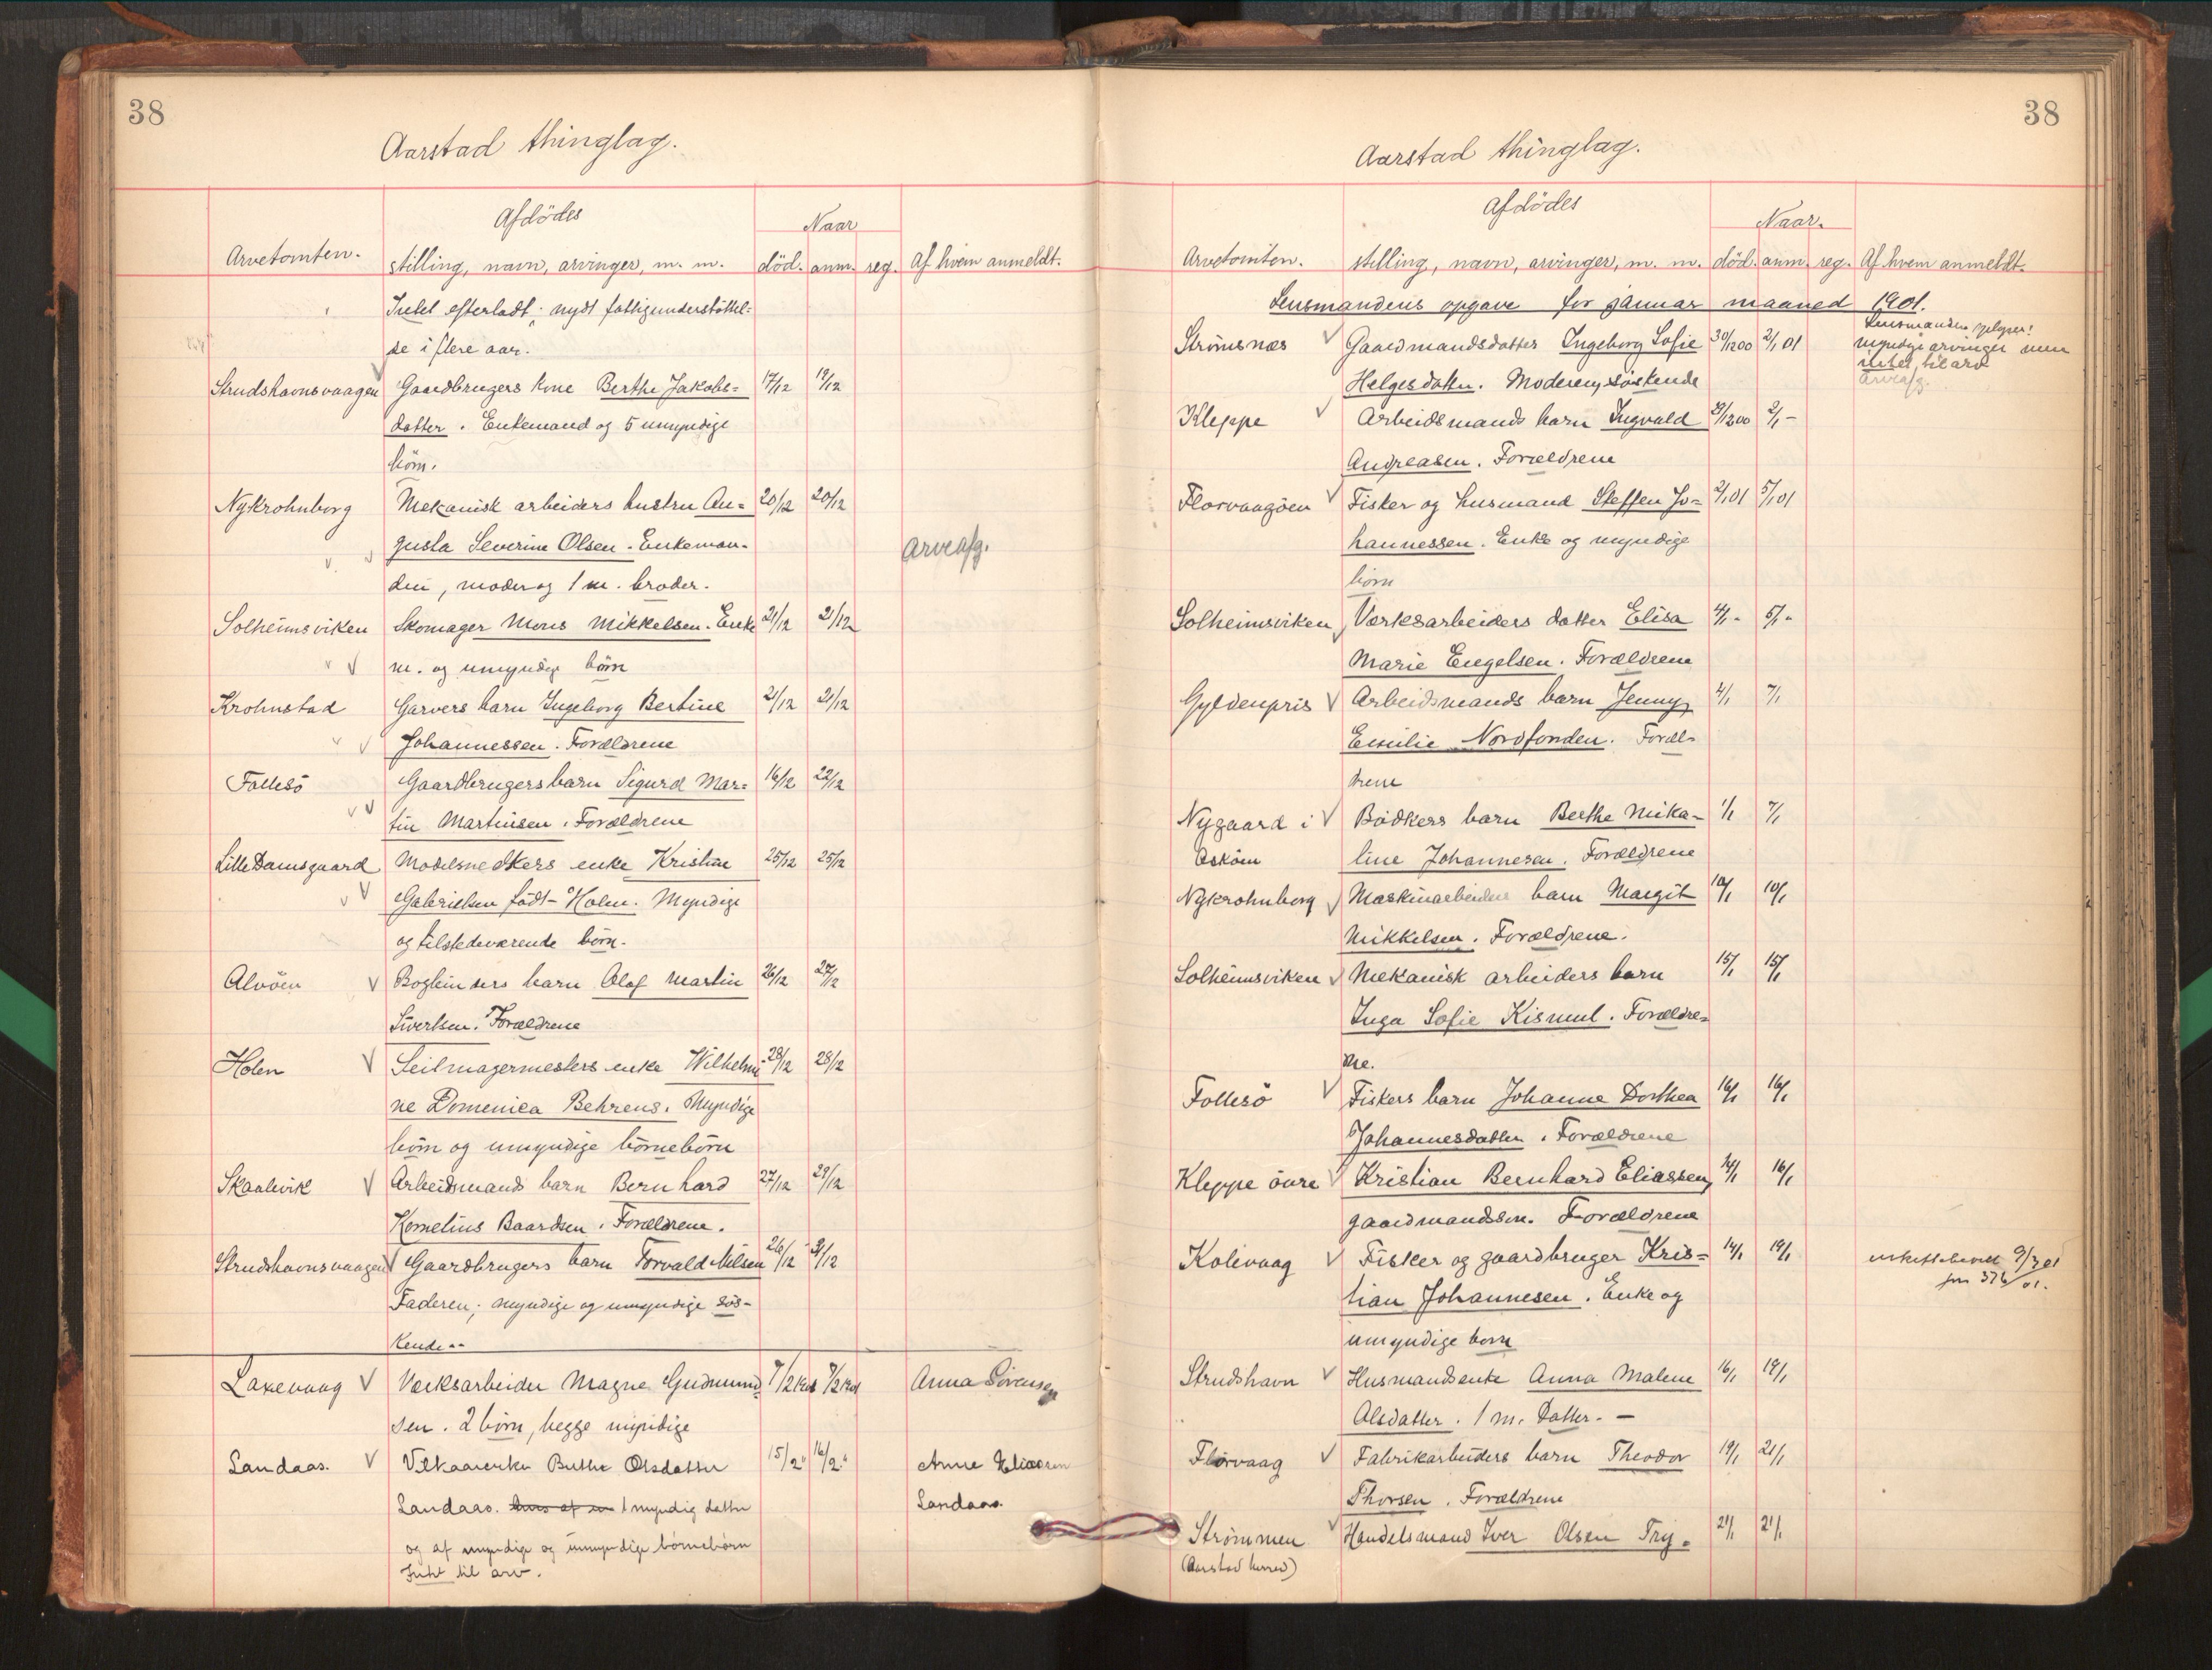 38
Aarstad thinglag.
Afdödes
Naar
Arvetomten.
stilling, navn, arvinger, m. m.
död. anm. reg. Af hvem anmeldt.
Intet efterladt; nydt fattigunderstöttel-
se i flere aar.
Strudshavnsvaagen Gaardbrugers kone Berthe Jakobs- 17/12 19/12
datter. Enkemand og 5 umyndige
börn.
Nykrohnborg Mekanisk arbeiders hustru Au- 20/12 20/12
gusta Severine Olsen. Enkeman- Arveafg.
den, moder og 1 m. broder.
Solheimsviken Skomager Mons Mikkelsen. Enke 21/12 21/12
m. og umyndige börn
Krohnstad Garvers barn Ingeborg Bertine 21/12 21/12
Johannessen. Forældrene
Follesö Gaardbrugers barn Sigurd Mar- 16/12 22/12
tin Martinsen. Forældrene
Lille Damsgaard Modelsnedkers enke Kristine 25/12 25/12
Gabrielsen födt Holm. Myndige
og tilstedeværende börn.
Alvöen V Bogbinders barn Olaf Martin 26/12 27/12
Sivertsen. Forældrene
Holen V Seilmagermesters enke Wilhelmi- 28/12 28/12
ne Domenica Behrens. Myndige
börn og umyndige börnebörn
Skaalevik V Arbeidsmands barn Bernhard 27/12 29/12
Kornelius Baardsen. Forældrene.
Strudshavnsvaagen V Gaardbrugers barn Torvald Nilsen 26/12 31/12
Faderen; myndige og umyndige sös-
kende
Laxevaag V Værksarbeider Magne Gudmund- 7/2 1901 9/2 1901 Anna Sörensen
sen. 2 börn, begge myndige
Landaas. V Vilkaarenke Berthe Olsdatter 15/2 " 16/2 " Anne Eliassen
Landaas. 1 myndig datter Landaas.
og af myndige og umyndige börnebörn
Intet til arv.
38
Aarstad thinglag.
Afdödes
Naar.
Arvetomten.
stilling, navn, arvinger, m. m. död. anm. reg. Af hvem anmeldt.
Lensmandens opgave for januar maaned 1901.
Strömsnæs V Gaardmandsdatter Ingeborg Sofie 30/12 00 2/1 01 Lensmanden oplyser:
myndige arvinger men
intet til arv
Arveafg.
Helgesdatter. Moderen, söskende
Kleppe V Arbeidsmands barn Ingvald 2/1 -
Andreasen. Forældrene
Florvaagöen V Fisker og husmand Steffen Jo- 2/1 01 5/1 01
hannessen. Enke og myndige
börn
Solheimsviken V Værksarbeiders datter Elisa 4/1 - 5/1 -
Marie Engelsen. Forældrene
Gyldenpris V Arbeidsmands barn Jenny 4/1 7/1
Emilie Nordfonden. Foræl-
drene
Nygaard i V Bödkers barn Berthe Mika- 1/1 7/1
Asköen line Johannesen. Forældrene
Nykrohnborg V Maskinarbeiders barn Margit 10/1 10/1
Mikkelsen. Forældrene.
Solheimsviken V Mekanisk arbeiders barn 15/1 15/1
Inga Sofie Kismul. Forældre-
ne.
Follesö V Fiskers barn Johanne Dorthea 16/1 16/1
Johannesdatter. Forældrene
Kleppe övre V Kristian Bernhard Eliassen, 14/1 16/1
gaardmandssön. Forældrene
Kolevaag V Fisker og gaardbruger Kris- 14/1 19/1 uskiftebevill 9/3 01
jnr 376/01.
tian Johannesen. Enke og
umyndige börn
Strudshavn V Husmandsenke Anna Malene 16/1 19/1
Olsdatter. 1 m. datter. -
Florvaag V Fabrikarbeiders barn Theodor 19/1 21/1
Thorsen. Forældrene
Strömmen V Handelsmand Iver Olsen Try- 21/1 21/1
(Aarstad herred)